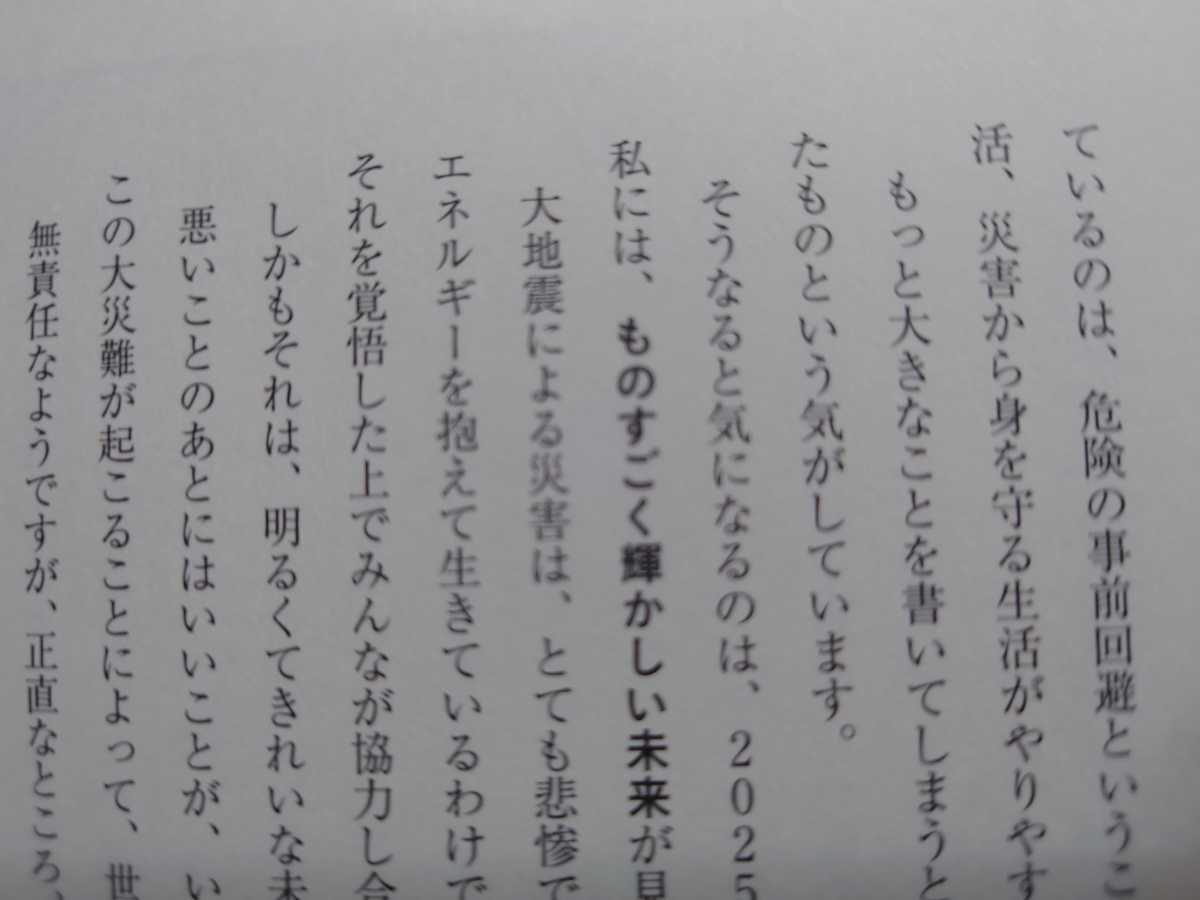 ているのは、危険の事前回避というこ
活、災害から身を守る生活がやりやす
もっと大きなことを書いてしまうと
たものという気がしています。
そうなると気になるのは、2025
私には、ものすごく輝かしい未来が見
大地震による災害は、とても悲惨で
エネルギーを抱えて生きているわけで
それを覚悟した上でみんなが協力し合
しかもそれは、明るくてきれいな未
悪いことのあとにはいいことが、い
この大災難が起こることによって、世
無責任なようですが、正直なところ、